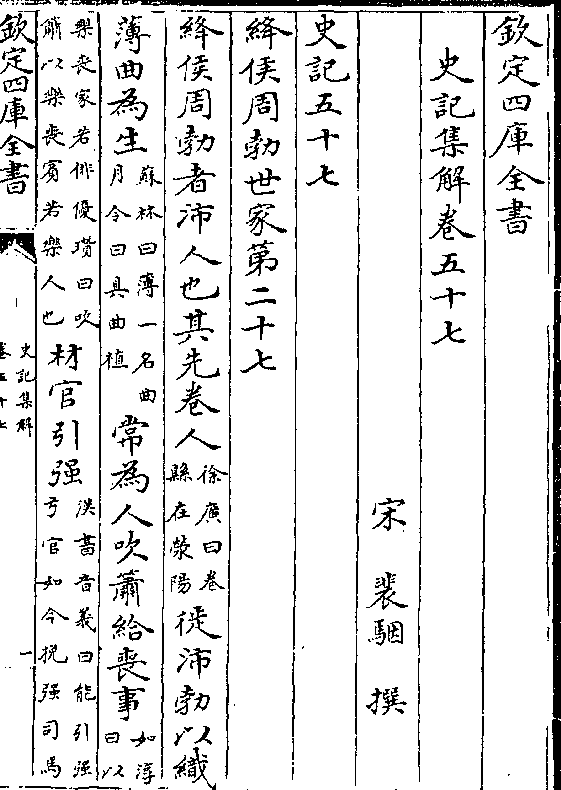 欽定四庫全書
史記集解卷五十七
宋 裴駰 撰
史記五十七
絳侯周勃世家第二十七
絳侯周勃者沛人也其先卷人徐廣曰卷縣在滎陽徙沛勃以織
薄曲為生蘇林曰薄一名曲月令曰具曲植常為人吹簫給喪事如淳曰以
樂喪家若俳優瓚曰吹簫以樂喪賓若樂人也材官引强漢書音義曰能引强弓官如今挽强司馬
欽定四庫全書 史記集解 卷五十七 一